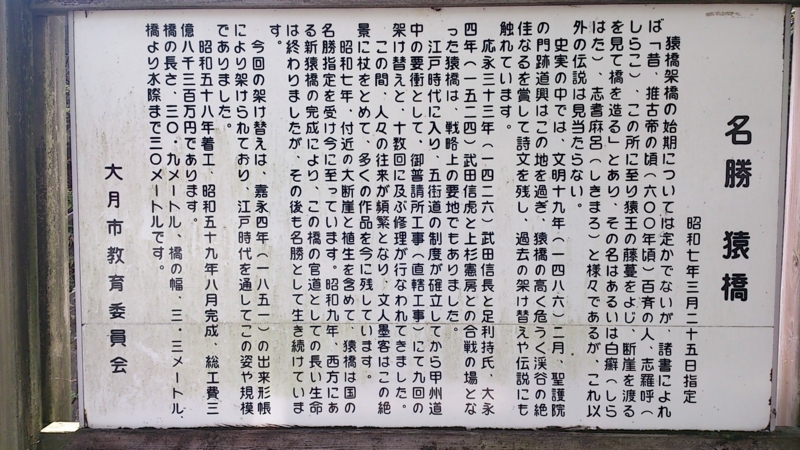 名勝 猿橋
昭和七年三月二十五日指定
猿橋架橋の始期については定かでないが、諸書によれ
ば「昔、推古帝の頃(六〇〇年頃)百斉の人、志羅呼(
しらこ)、この所に至り猿王の藤蔓をよじ、断崖を渡る
を見て橋を造る」とあり、その名はあるいは白癬(しら
はた)、志耆麻呂(しきまろ)と様々であるが、これ以
外の伝説は見当たらない。
史実の中では、文明十九年(一四八六)二月、聖護院
の門跡道興はこの地を過ぎ、猿橋の高く危うく渓谷の絶
佳なるを賞して詩文を残し、過去の架け替えや伝説にも
触れています。
応永三十三年(一四二六)武田信長と足利持氏、大永
四年(一五二四)武田信虎と上杉憲房との合戦の場とな
った猿橋は、戦略上の要地でもありました。
江戸時代に入り、五街道の制度が確立してから甲州道
中の要衝として、御普請所工事(直轄工事)にて九回の
架け替えと、十数回に及ぶ修理が行なわれてきました。
この間、人々の往来が頻繁となり、文人墨客はこの絶
景に杖をとめて、多くの作品を今に残しています。
昭和七年、付近の大断崖と植生を含めて、猿橋は国の
名勝指定を受け今に至っています。昭和九年、西方にあ
る新猿橋の完成により、この橋の官道としての長い生命
は終わりましたが、その後も名勝として生き続けていま
す。
今回の架け替えは、嘉永四年(一八五一)の出来形帳
により架けられており、江戸時代を通してこの姿や規模
でありました。
昭和五十八年着工、昭和五十九年八月完成、総工費三
億八千三百万円であります。
橋の長さ、三〇・九メートル、橋の幅、三・三メートル
橋より水際まで三〇メートルです。
大月市教育委員会